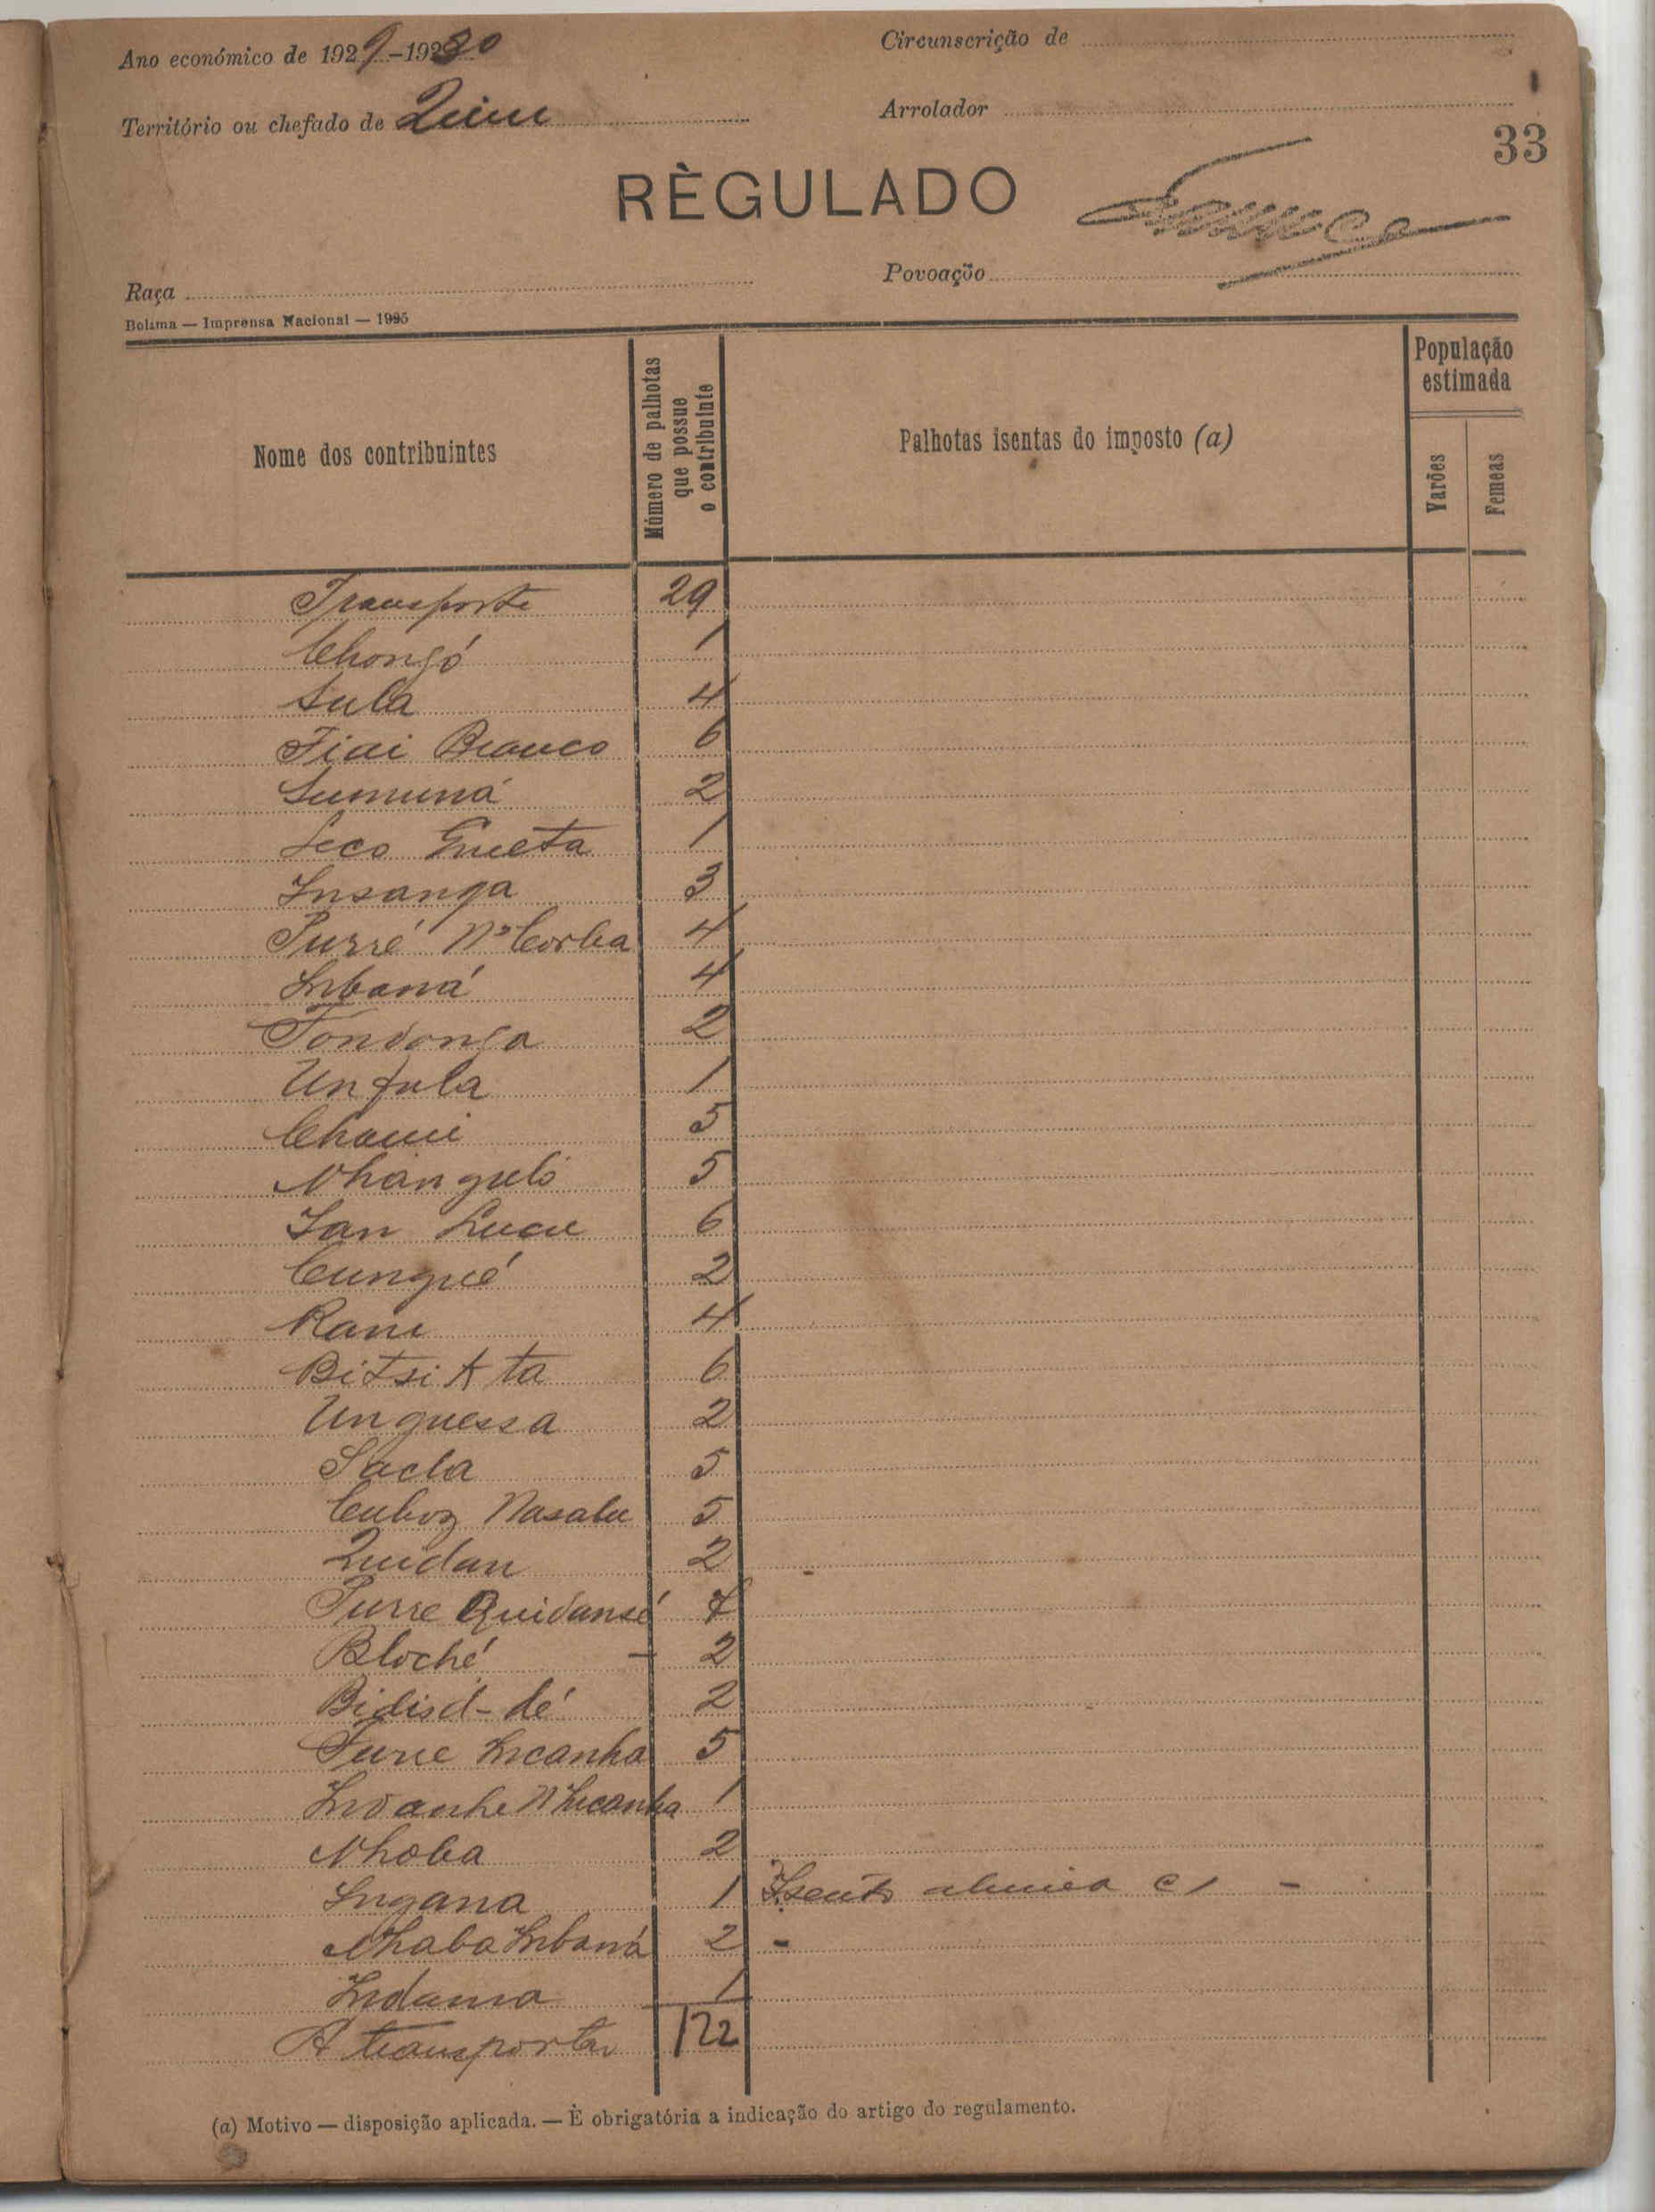 Ano económico de 1929-1930
Circunscrição de
Território ou chefado de
Arrolador
33
RÈGULADO
Raça
Povoação
Bolama — Imprensa Nacional — 1925
Nome dos contribuintes
Número de palhotas que possue o contribuinte
Palhotas isentas do imposto (a)
População estimada
Varões
Femeas
Transporte 29
Chongó 1
Sula 4
Fiai Branco 6
Sumuná 2
Seco Gueta 1
Insanga 3
Purré N'Corba 4
Inbaná 4
Tondonga 2
Unfula 1
Chami 5
Nhanguló 5
Jan 6
Cungué 2
Rani 4
Bitsi A ta 6
Unguessa 2
Sacla 5
Cuboz Nasalu 5
Quidan 2
Purre Quidansé 7
Bloché - 2
Bidisd-dé 2
Incanha 5
Indanhe N'Incanha 1
Nhoba 2
Ingana 1 Isento alinea c) -
Nhaba Inbaná 2 -
Indama 1
A transportar 122
(a) Motivo — disposição aplicada. — È obrigatória a indicação do artigo do regulamento.